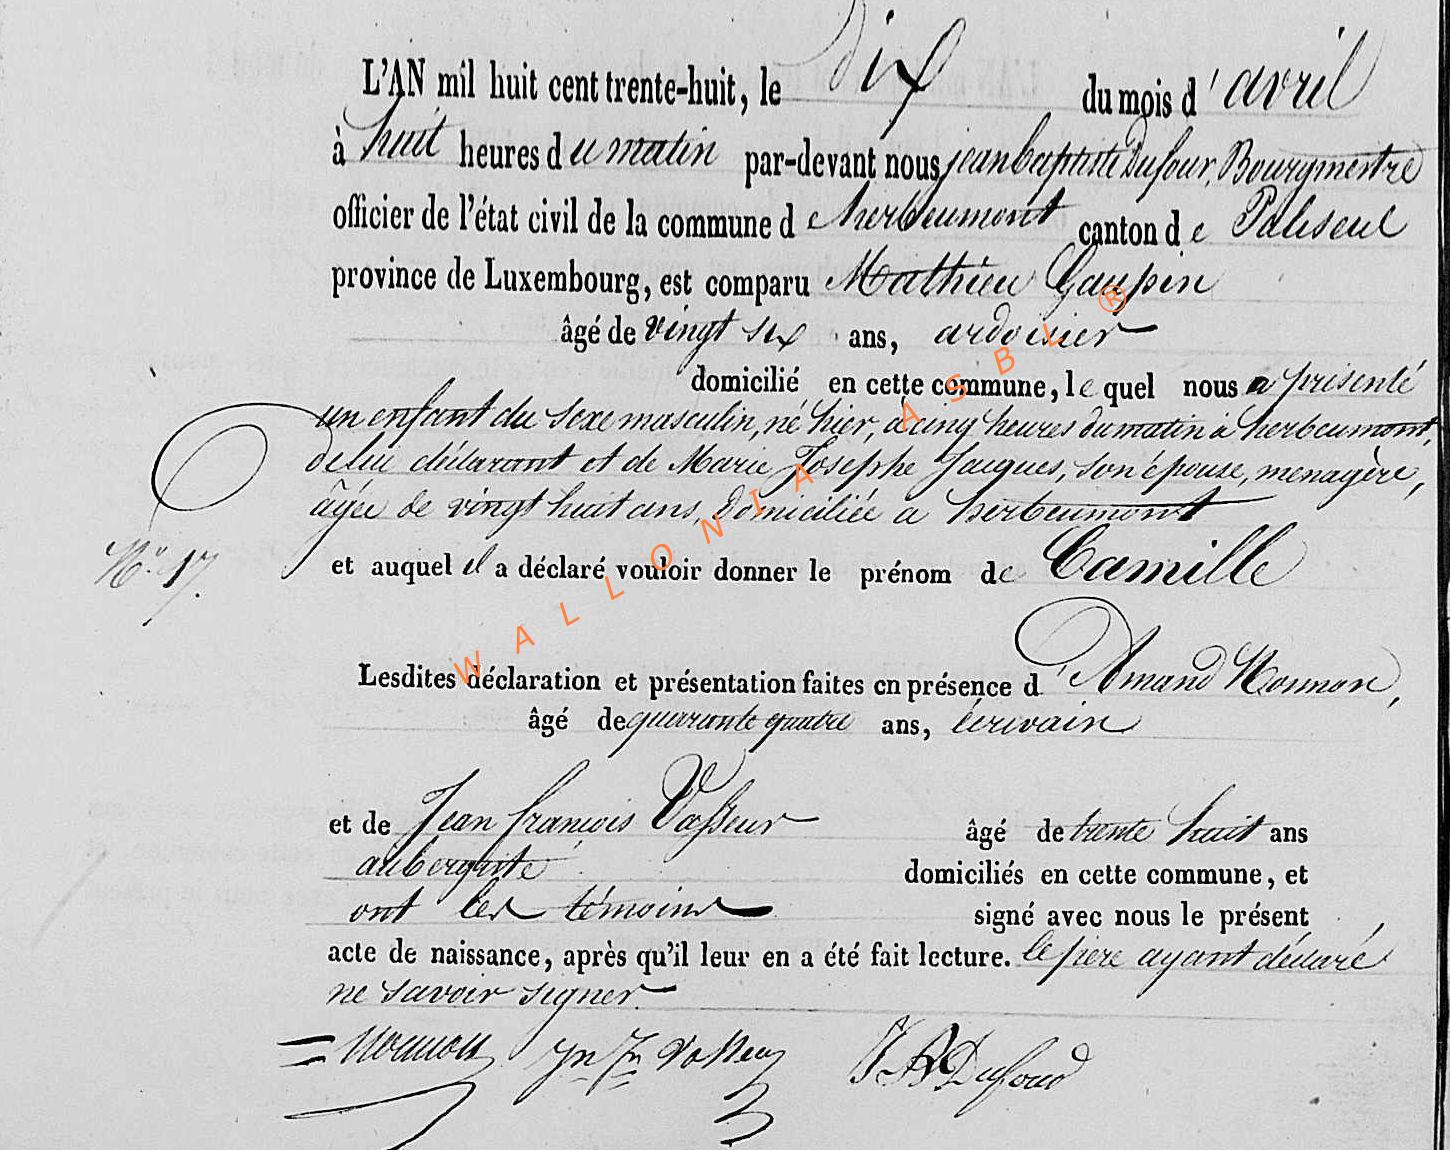 L'AN mil huit cent trente-huit, le dix du mois d'avril
à huit heures du matin par-devant nous jean baptiste Dufour, Bourgmestre
officier de l'état civil de la commune de herbeumont canton de Paliseul
province de Luxembourg, est comparu Mathieu Gaupin
âgé de vingt six ans, ardoisier
domicilié en cette commune, lequel nous a présenté
un enfant du sexe masculin, né hier, à cinq heures du matin à herbeumont,
de lui déclarant et de Marie Josephe Jacques, son épouse, menagère,
âgée de vingt huit ans, domiciliée à herbeumont
N.º 17.
et auquel il a déclaré vouloir donner le prénom de Camille
Lesdites déclaration et présentation faites en présence d'Amand Nonnon,
âgé de quarante quatre ans, écrivain
et de Jean françois Vasseur âgé de trente huit ans
aubergiste domiciliés en cette commune, et
ont les témoins signé avec nous le présent
acte de naissance, après qu'il leur en a été fait lecture. le père ayant déclaré
ne savoir signer.
Nonnon Jn Fn Vasseur JB Dufour
WALLONIA ASBL ®